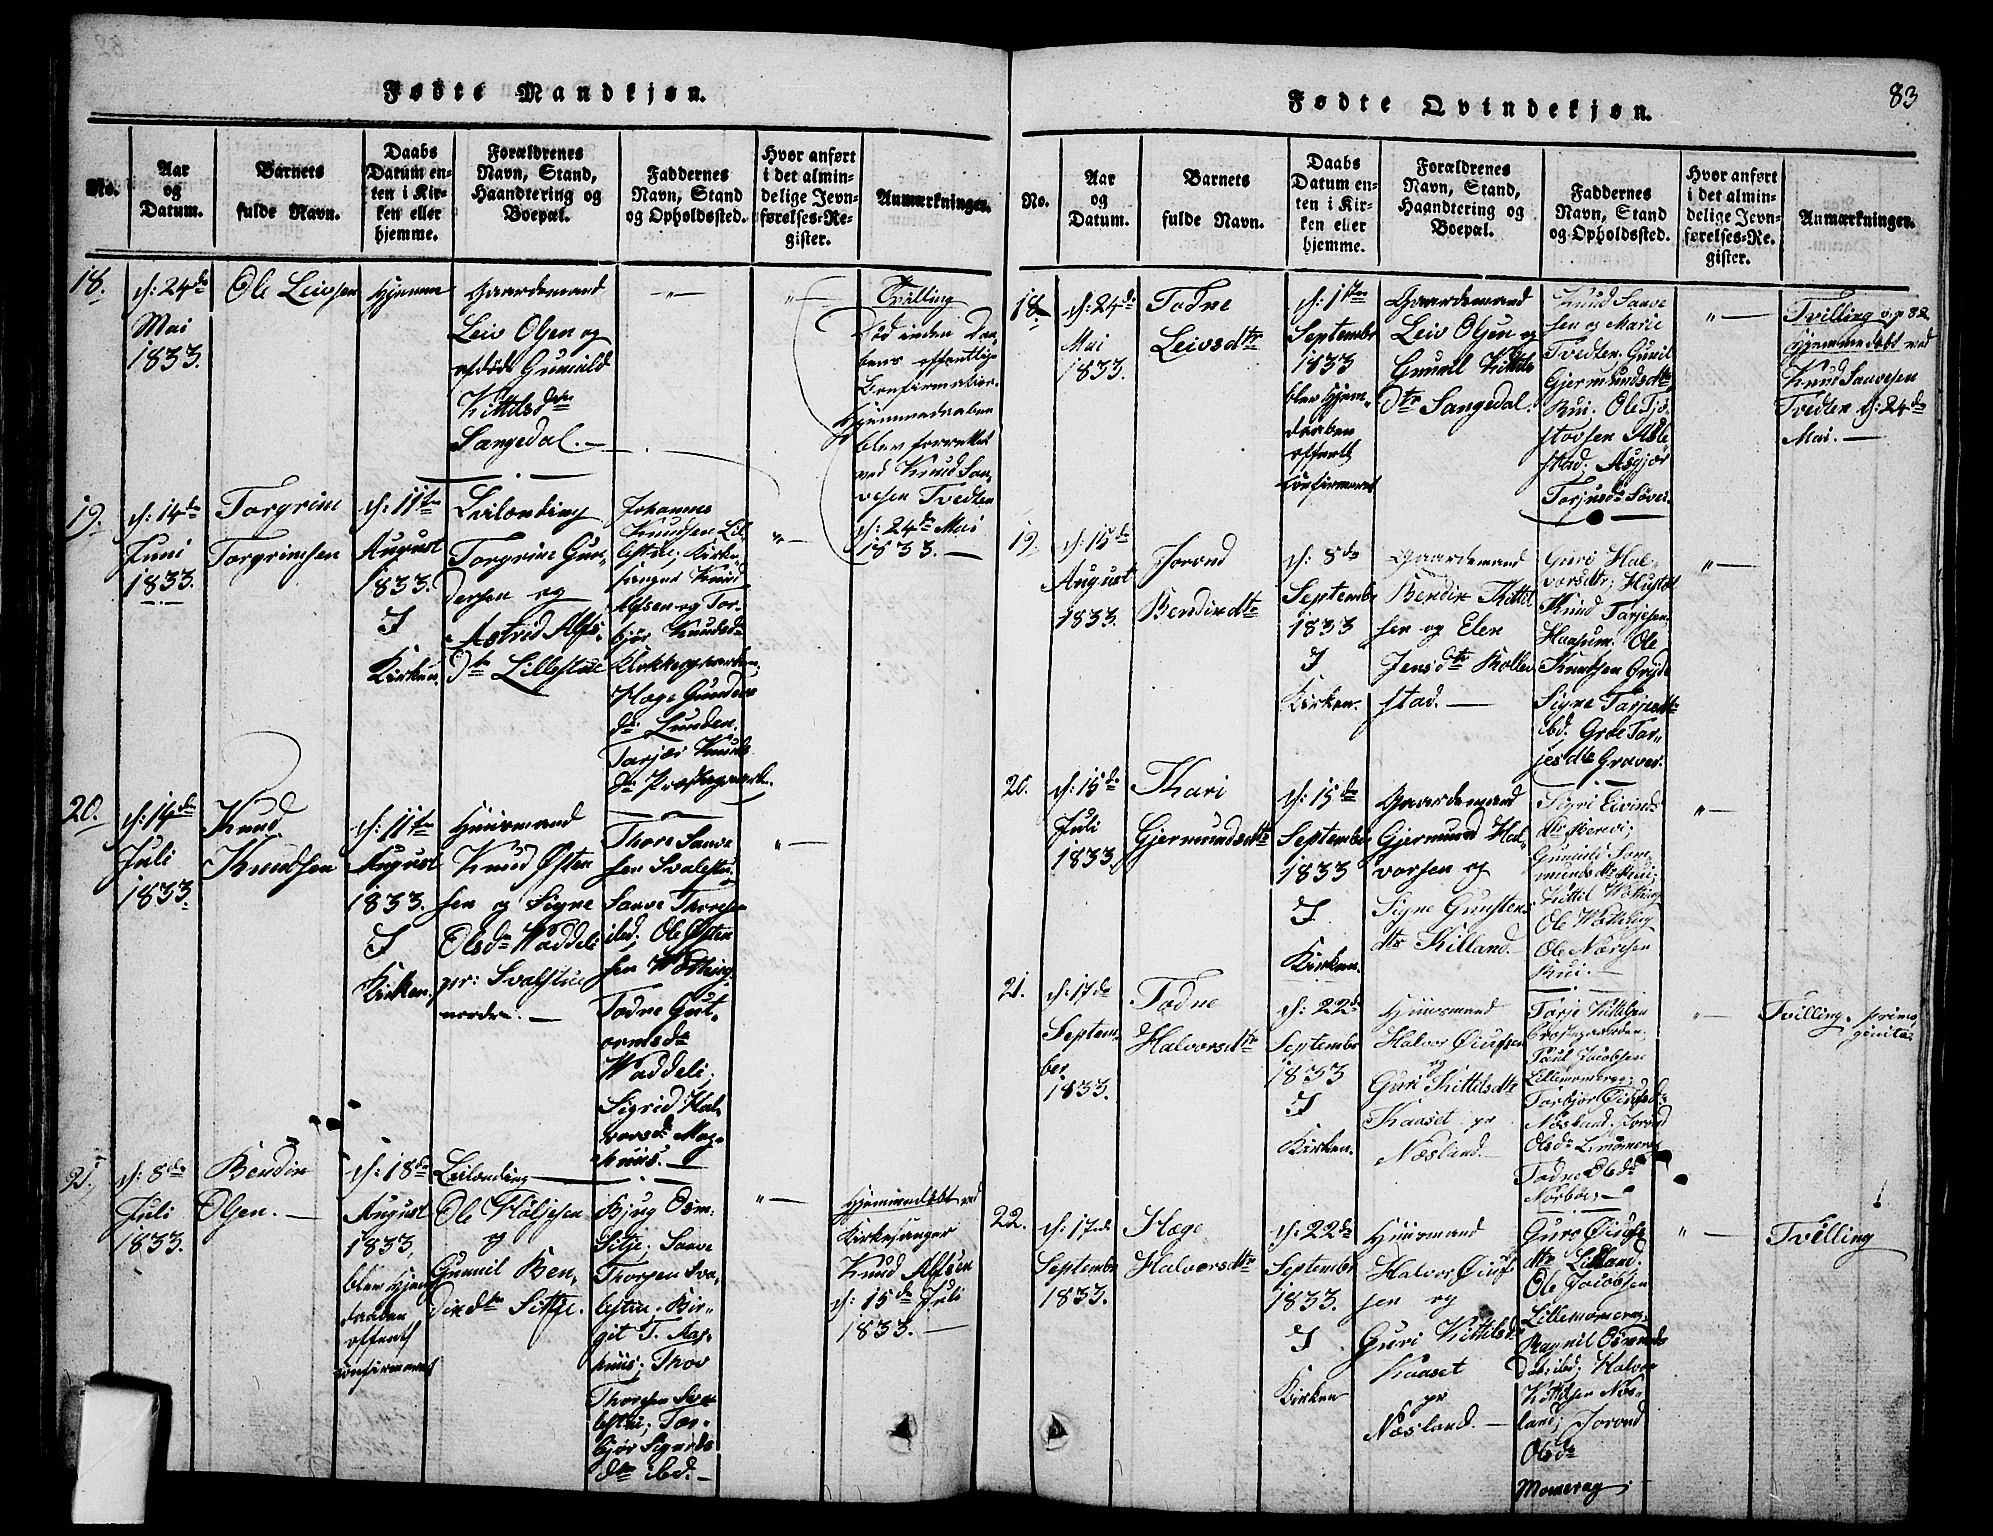 83
Fødte Mandkjøn.
No.
Aar
og
Datum.
Barnets
fulde Navn.
Daabs
Datum en-
ten i Kir-
ken eller
hjemme.
Forældrenes
Navn, Stand,
Haandtering og
Boepæl.
Faddernes
Navn, Stand
og Opholdssted.
Hvor anført
i det almin-
delige Jevn-
førelses-Re-
gister.
Anmærkninger.
18.
d: 24de
Mai
1833.
Ole Leivsen
Hjemme
Gaardemand
Leiv Olsen og
Gunnild
Kittilsdtr
Sangedal. —
" —
" —
Tvilling
Død inden Daa-
bens offentlige
Confirmation.
Hjemmedaaben
blev forrettet
ved Knud Saa-
vesen Tvedten
d: 24de Mai
1833. —
19.
d: 14de
Juni
1833.
Torgrim
Torgrimsen
d: 11te
August
1833.
I
Kirken.
Leilænding
Torgrim Gun-
dersen og
Astrid Alfs-
dtr Lillestue
Johannes
Knudsen Lil-
lestue; Kirke-
sanger Knud
Alfsen og Tor-
bjør Knudsdr
Klokkergaarden,
Hæge Gunders
dr. Lunden
Tarjær Knuds
dr. Præstegaard.
" —
20.
d: 14de
Juli
1833.
Knud
Knudsen
d: 11te
August
1833.
I
Kirken.
Huusmand
Knud Østen
sen og Signe
Olsdr Waddeli
pr: Svalstue
nordre. —
Thore Saave
sen Svalestu.
Saave Thoresen
ibd; Ole Østen
sen
Todne Gut-
ormsdr
Waddeli;
Sigrid Hal-
vorsdr Mog-
huus. —
" —
21.
d: 8de
Juli
1833.
Bendix
Olsen. —
d: 18de
August
1833,
blev Hjem
daaben
offentl
confirmeret
Leilænding
Ole Høljesen
og
Gunnil Ben-
dixdtr Sitje.
Bjug Osm.
Sitje; Saave
Thorsen Sva-
lestue. Bir-
git T. Aas-
huus; Thov
Thorsen Sva
lestue; Tor-
bjør Sigurds
dtr ibd. —
" —
Hjemmedøbt ved
Kirkesanger
Knud Alfsen
d: 15de Juli
1833. —
Fødte Qvindekjøn.
No.
Aar
og
Datum.
Barnets
fulde Navn.
Daabs
Datum en-
ten i Kir-
ken eller
hjemme.
Forældrenes
Navn, Stand,
Haandtering og
Boepæl.
Faddernes
Navn, Stand
og Opholdssted.
Hvor anført
i det almin-
delige Jevn-
førelses-Re-
gister.
Anmærkninger.
18
d: 24de
Mai
1833.
Todne
Leivsdtr
d: 1ste
Septembr
1833
blev Hjem-
daaben
offentl
confirmeret
Gaardemand
Leiv Olsen og
Gunnil Kittils
dtr Sangedal.
Knud Saave
sen og Marie
Tvedten. Gunil
Gjermundsdtr
Rui. Ole Tjø-
stovsen Aase-
stad. Asgjær
Tarjusdr Søver.
" —
Tvilling v. p 82
Hjemmedøbt ved
Knud Saavesen
Tvedten d: 24de
Mai. —
19.
d: 15de
August
1833.
Jorond
Bendixdtr
d: 8de
Septembr
1833
I
Kirken.
Gaardemand
Bendix Kittel
sen og Elen
Jensdtr Kolle-
stad. —
Guri Hal-
vorsdtr; Hustot
Knud Tarjesen
Haasum. Ole
Knudsen Gryde
Signe Tarjesdtr
ibd. Groe Tar-
jesdtr Graver.
" —
20.
d: 15de
Juli
1833.
Kari
Gjermundsdtr
d: 15de
Septembr
1833
I
Kirken.
Gaardemand
Gjermund Hal-
vorsen og
Signe Gunstens
dtr Killand. —
Sigri Eivinds
dtr
Gunild
Kittil
Ole
Ole
Rui. —
" —
21.
d: 17de
Septem-
ber
1833.
Todne
Halvorsdtr
d: 22de
Septembr
1833
I
Kirken.
Huusmand
Halvor Øiufsen
og
Guri Kittilsdtr
Kaaset pr
Næsland. —
Tarje Kittilsen
Paul Jacobsen
Lillemomerag;
Torbjør Øiufsdr:
Næsland. Jorond
Olsdr
Todne Olsdr
Norbøe; —
" —
Tvilling. primo
genita.
22.
d: 17de
Septembr
1833.
Hæge
Halvorsdtr
d: 22de
Septembr
1833.
I
Kirken
Huusmand
Halvor Øiuf
sen og
Guri Kittilsdr
Kaaset
pr
Næsland. —
Guro Øiufs
dtr
Ole Jacobsen
Lillemomerag.
Ragnil Osmunds
datr ibd; Halvor
Kittilsen Næs-
land; Jorond
Olsdr
Momerag.
" —
Tvilling